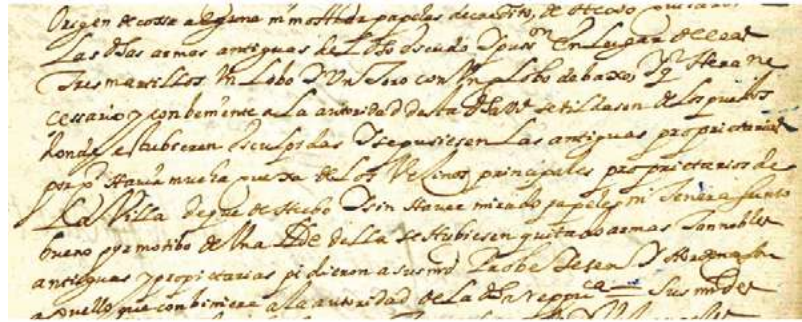 Origen de cossa alguna ni mostrar papeles de credito, de
Las dhas armas antiguas de dho escudo y puso en Lugar de ellas
Tres martillos Un Lobo y Un Toro con Un Lobo debaxo y q Hera ne
cessario y conbeniente a La autoridad desta dha se tildasen de los puestos
donde estubieren esculpidas y se pusiesen Las antiguas proprietarias
por q Havia mucha quexa de Los Vecinos principales proprietarios de
La Villa de que de Hecho y sin Haver mirado papeles ni Tener a Junto
bueno por motibo de Una de della se Hubiesen quitado armas Tan nobles
antiguas y proprietarias pidieron a sus md Probeyesen y Hordenasen
aquello que conbiniere a la autoridad de La dha reppca = Sus mdes